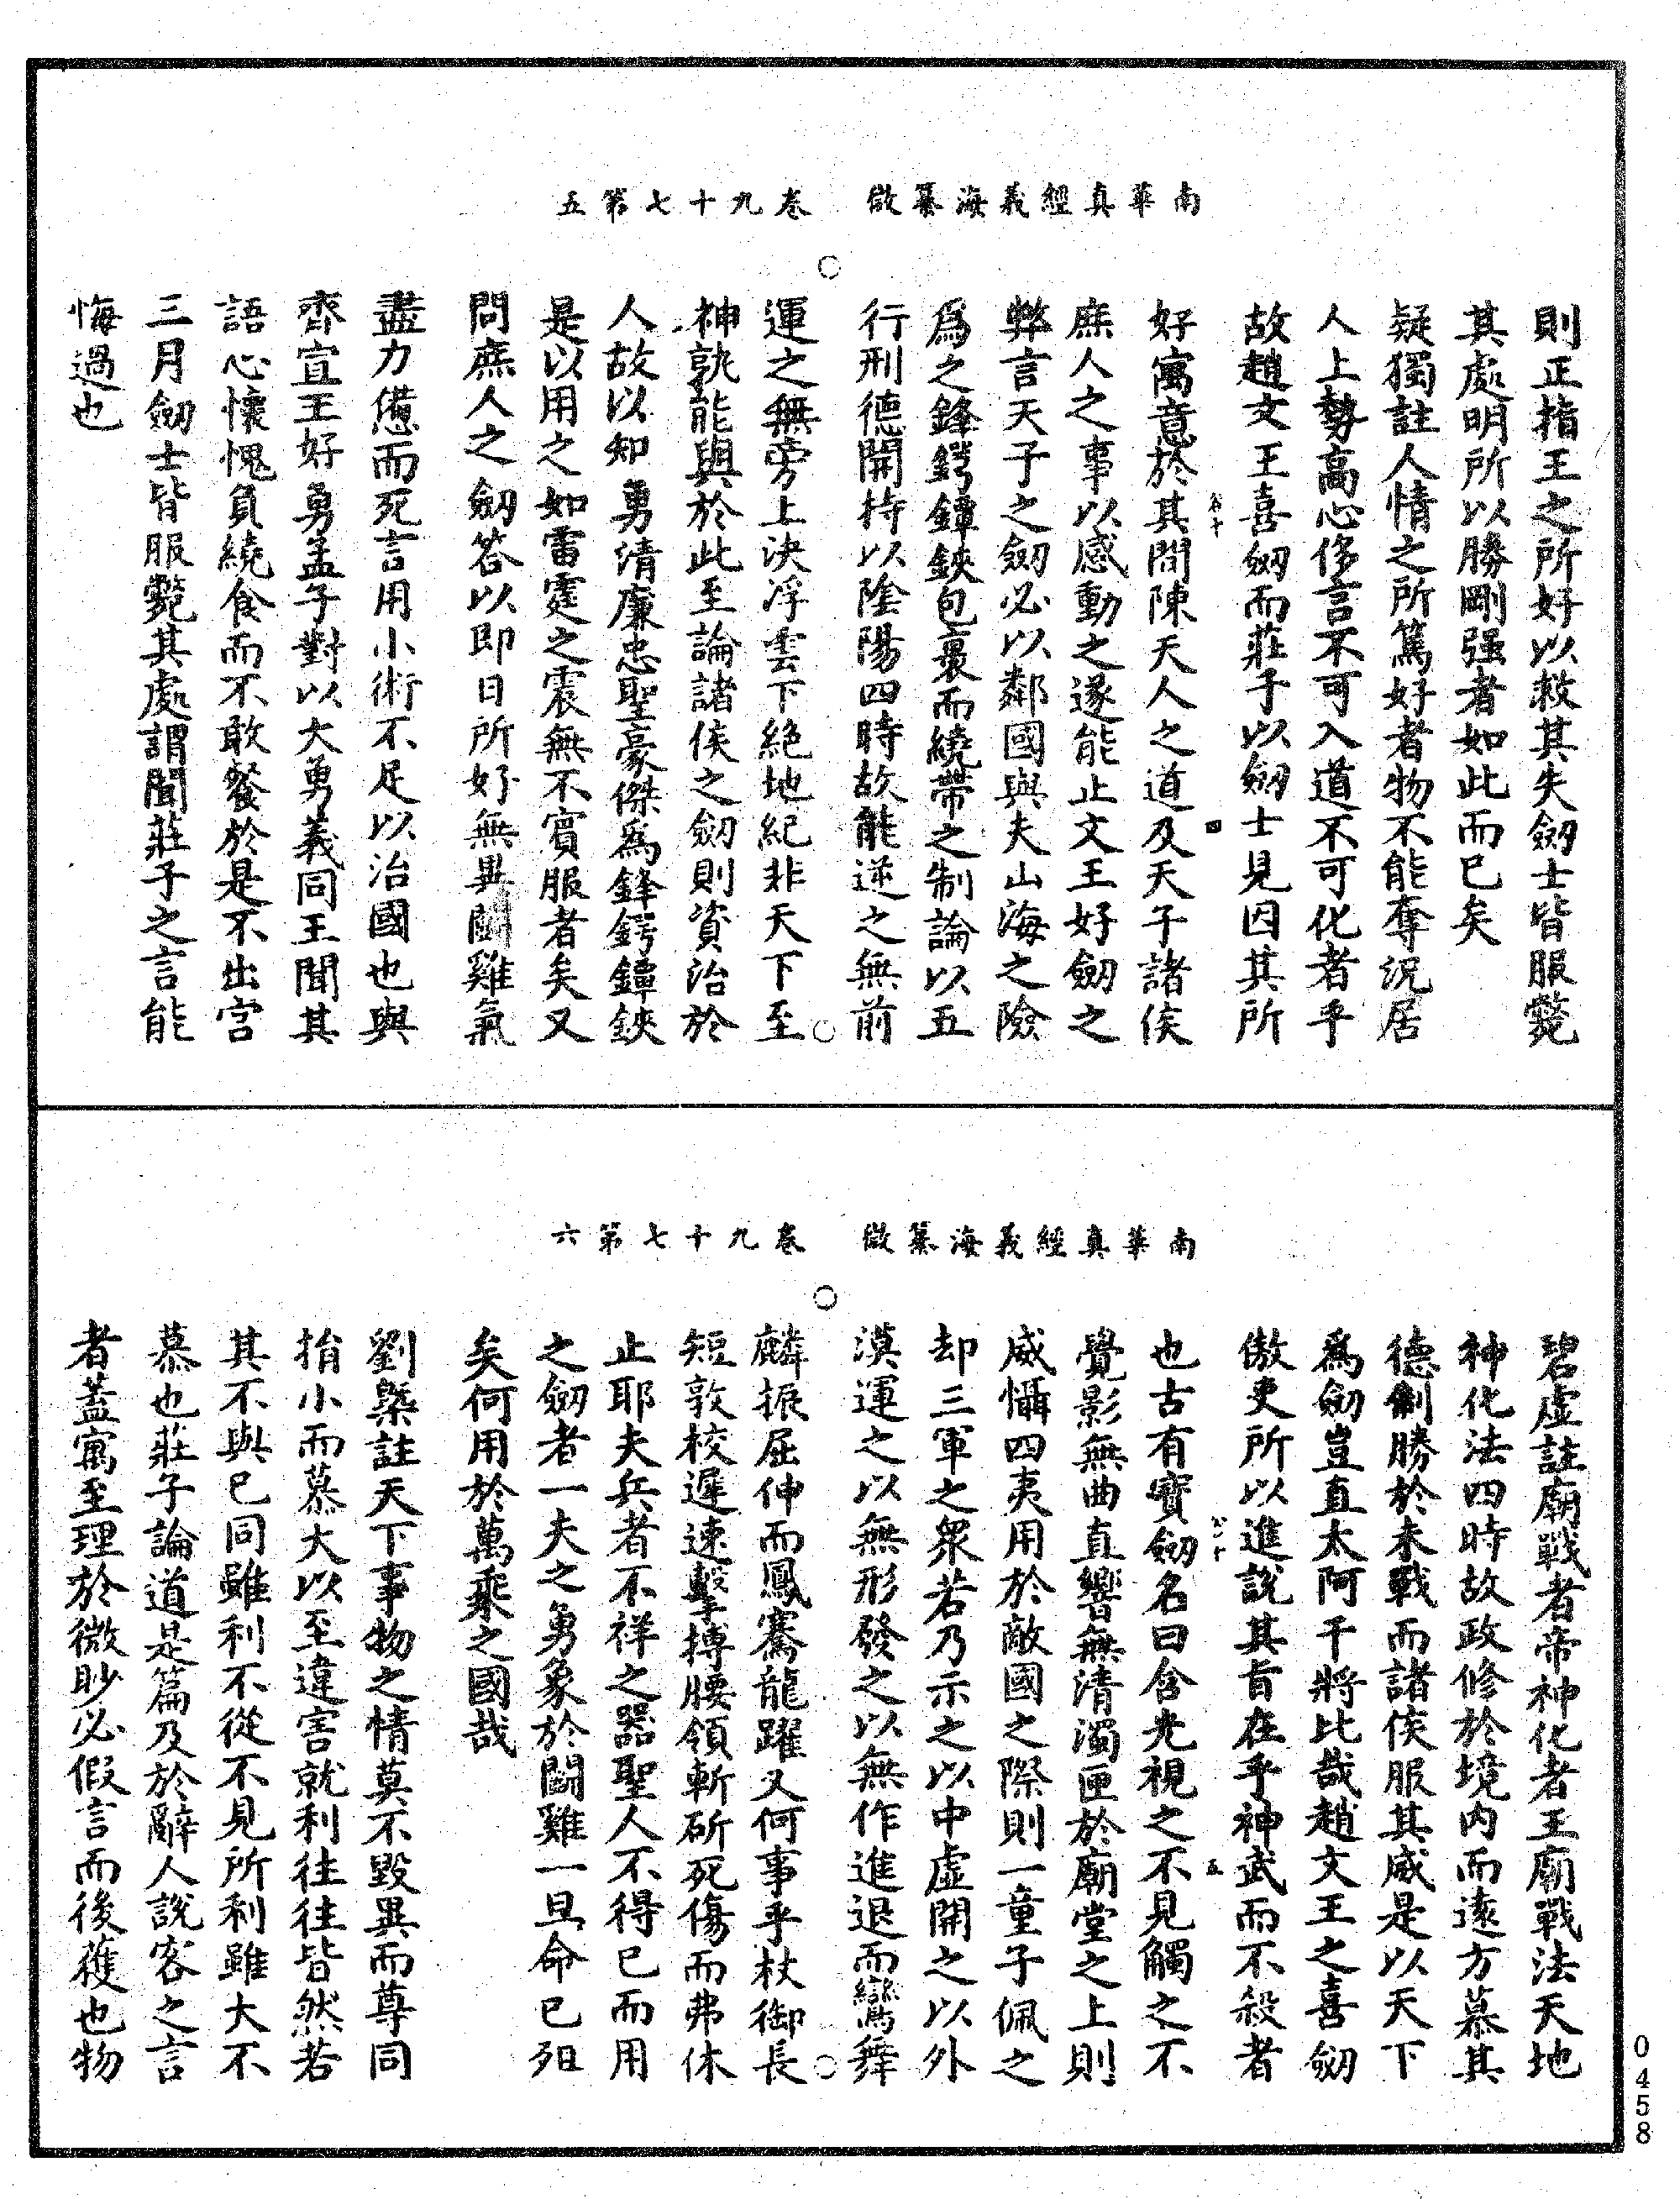 南華真經義海纂微　卷九十七第五
則正指王之所好以救其失劒士皆服斃
其處明所以勝剛强者如此而已矣
疑獨註人情之所篤好者物不能奪況居
人上勢高心侈言不可入道不可化者乎
故趙文王喜劒而莊子以劒士見因其所
好寓意於其間陳天人之道及天子諸侯
庶人之事以感動之遂能止文王好劒之
弊言天子之劒必以鄰國與夫山海之險
爲之鋒鍔鐔鋏包裹而繞帶之制論以五
行刑德開持以陰陽四時故能逆之無前
運之無旁上決浮雲下絕地紀非天下至
神孰能與於此至論諸侯之劒則資治於
人故以知勇清廉忠聖豪傑爲鋒鍔鐔鋏
是以用之如雷霆之震無不賓服者矣又
問庶人之劒答以即日所好無異鬭雞氣
盡力憊而死言用小術不足以治國也與
齊宣王好勇孟子對以大勇義同王聞其
語心懷愧負繞食而不敢餐於是不出宮
三月劒士皆服斃其處謂聞莊子之言能
悔過也
南華真經義海纂微　卷九十七第六
碧虛註廟戰者帝神化者王廟戰法天地
神化法四時故政修於境內而遠方慕其
德制勝於未戰而諸侯服其威是以天下
爲劒豈直太阿干將比哉趙文王之喜劒
傲吏所以進說其旨在乎神武而不殺者
也古有寶劒名曰含光視之不見觸之不
覺影無曲直響無清濁匣於廟堂之上則
威懾四夷用於敵國之際則一童子佩之
却三軍之衆若乃示之以中虛開之以外
漠運之以無形發之以無作進退而鸞舞
麟振屈伸而鳳騫龍躍又何事乎杖御長
短敦校遲速擊搏腰領斬斫死傷而弗休
止耶夫兵者不祥之器聖人不得已而用
之劒者一夫之勇象於鬭雞一旦命已殂
矣何用於萬乘之國哉
劉槩註天下事物之情莫不毀異而尊同
捐小而慕大以至違害就利往往皆然若
其不與己同雖利不從不見所利雖大不
慕也莊子論道是篇及於辭人說客之言
者蓋寓至理於微眇必假言而後獲也物
0458